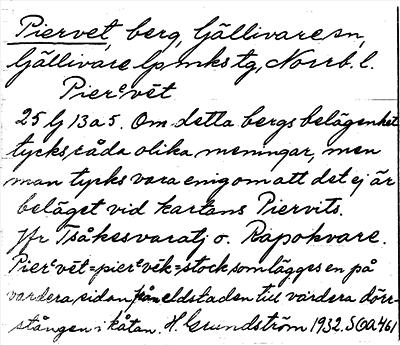 Piervet, berg, Gällivare sn,
Gällivare lpmkstg, Norrb. l.
Pierᵉvēt
25 G 13 a 5. Om detta bergs belägenhet
tycks råda olika meningar, men
man tycks vara enig om att det ej är
beläget vid kartans Piervits.
Jfr Tsåkesvaratj o. Rapokvare.
Pierᵉvēt = pierᵉvēk = stock som lägges en på
vardera sidan från eldstaden till vardera dörr-
stången i kåtan. H. Grundström 1932. SOA 461